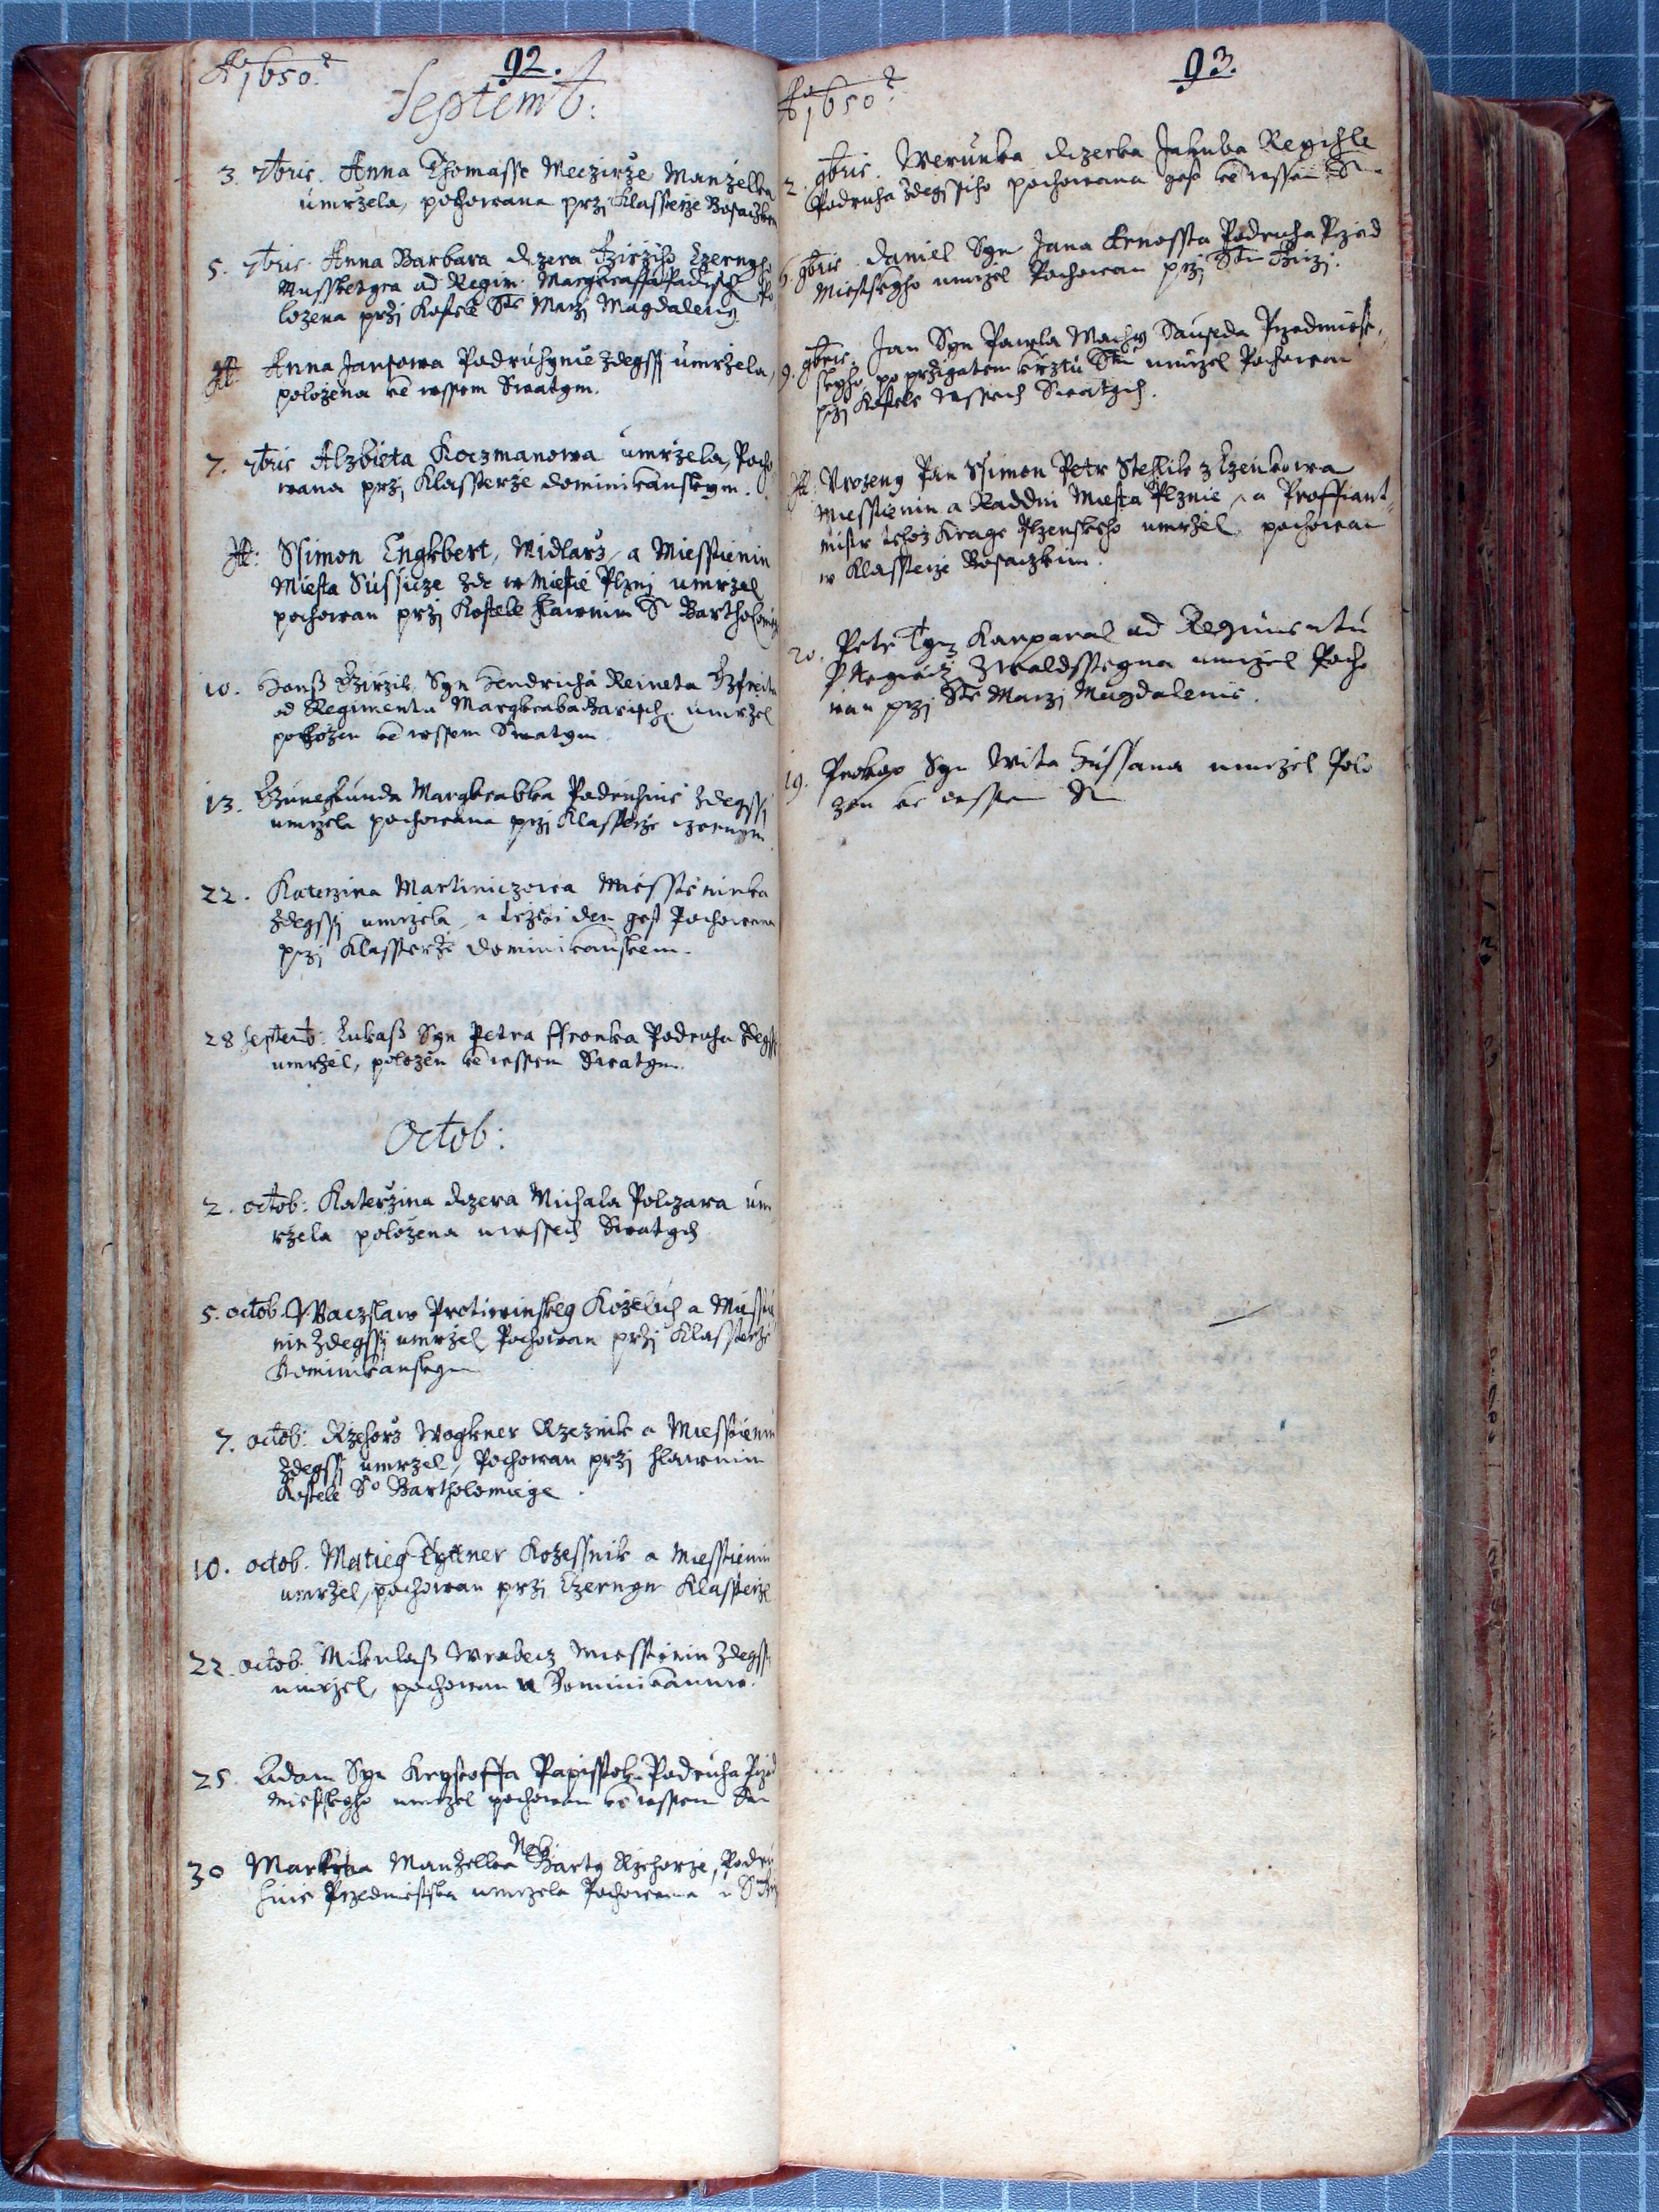 Ao 1650.
92.
Septemb:
3. 7bris. Anna Thomasse Meczirze Manzelka
umrzela, pochowana przj Klassterze Bosaczkem
5. 7bris. Anna Barbara dczera Girziho Czerneho
Mussketyra od Regim: Po
lozena przj Kostele Ste Marzj Magdaleny
Anna Jansowa Podruhynie zdegssj umrzela,
polozena ke wssem Swatym.
7. 7bris Alzbieta Koczmanowa umrzela, Pocho
wana przj Klassterze dominikanskym.
Ssimon Engkbert, Midlarz, a Miesstienin
Miesta Sussicze zde w Miestie Plznj umrzel
pochowan przj Kostele hlawnim S Bartholomieg
10. Hanß Girzik Syn Hendricha Reineta
od Regimentu umrzel
polozen ke wssem Swatym
13. Kunegunda Margkrabka Podruhinie zdegssj
umrzela pochowana przj Klassterze czernym
22. Katerzina Martiniczowa Miesstieninka
zdegssj umrzela, a trzeti den gest Pochowana
przj Klassterze dominikanskem.
28 Septemb: Lukaß Syn Petra ffronka Podruha zdegss
umrzel, polozen ke wssem Swatym.
Octob:
2. octob: Katerzina dczera Michala Polczara um
rzela polozena u wssech Swatych
5. octob. Waczslaw Protiwinsky Kozeluch a Miesstie
nin zdegssj umrzel Pochowan przj Klassterze
Dominikanskym
7. octob: Rzehorz Wogkner Rzeznik a Miesstienin
zdegssj umrzel, Pochowan przj hlawnim
Kostele So Bartholomiege.
10. octob. Matieg Tyttner Kozessnik a Miesstienin
umrzel, pochowan przj Czernym Klassterze
22. octob. Mikulaß Wrabecz Miesstienin zdegss
umrzel, pochowan u Dominikanuw.
25. Adam Syn Krystoffa Podruha Przed
miestskyho umrzel pochowan ke wssem Sm
30 Marketa Manzelka Neb: Barty Rzehorze, Podru
hinie Przedmiestska umrzela Pochowana u S
Ao 1650.
93.
2. 9bris. Werunka dczerka Jakuba Reychle
Podruha zdegssiho pochowana gest ke wssem Sm
6. 9bris. Daniel Syn Jana Arnossta Podruha Przed
Miestskyho umrzel Pochowan przj Stm Girzj.
9. 9bris. Jan Syn Pawla Machy Sauseda Przedmiest
skyho, po przigatem krztu Stm umrzel Pochowan
przj Kostele wssech Swatych.
Urozeny Pan Ssimon Petr Stehlik z Czenkowa
Miesstienin a Raddni Miesta Plznie, a Proffiant
mistr tehoz Krage Plzenskeho umrzel, pochowan
w Klassterze Bosaczkim.
20. Petr Karparal od Regimentu
umrzel Pocho
wan przj Ste Marzj Magdalenie.
19. Prokop Syn Wita Hussana umrzel Polo
zen ke wssem Sm